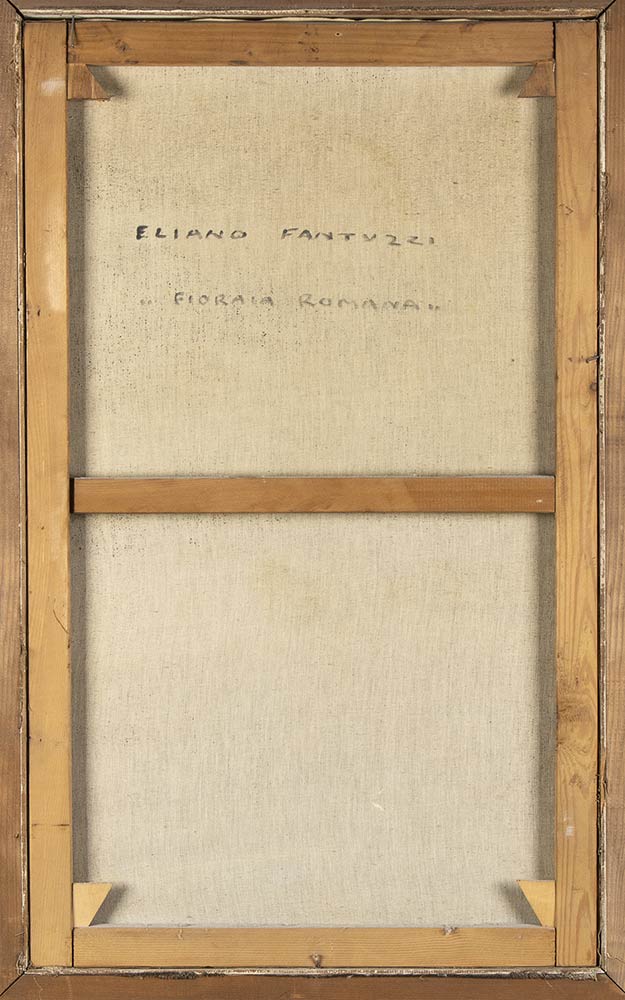 ELIANO FANTUZZI
„ FIORAIA ROMANA „